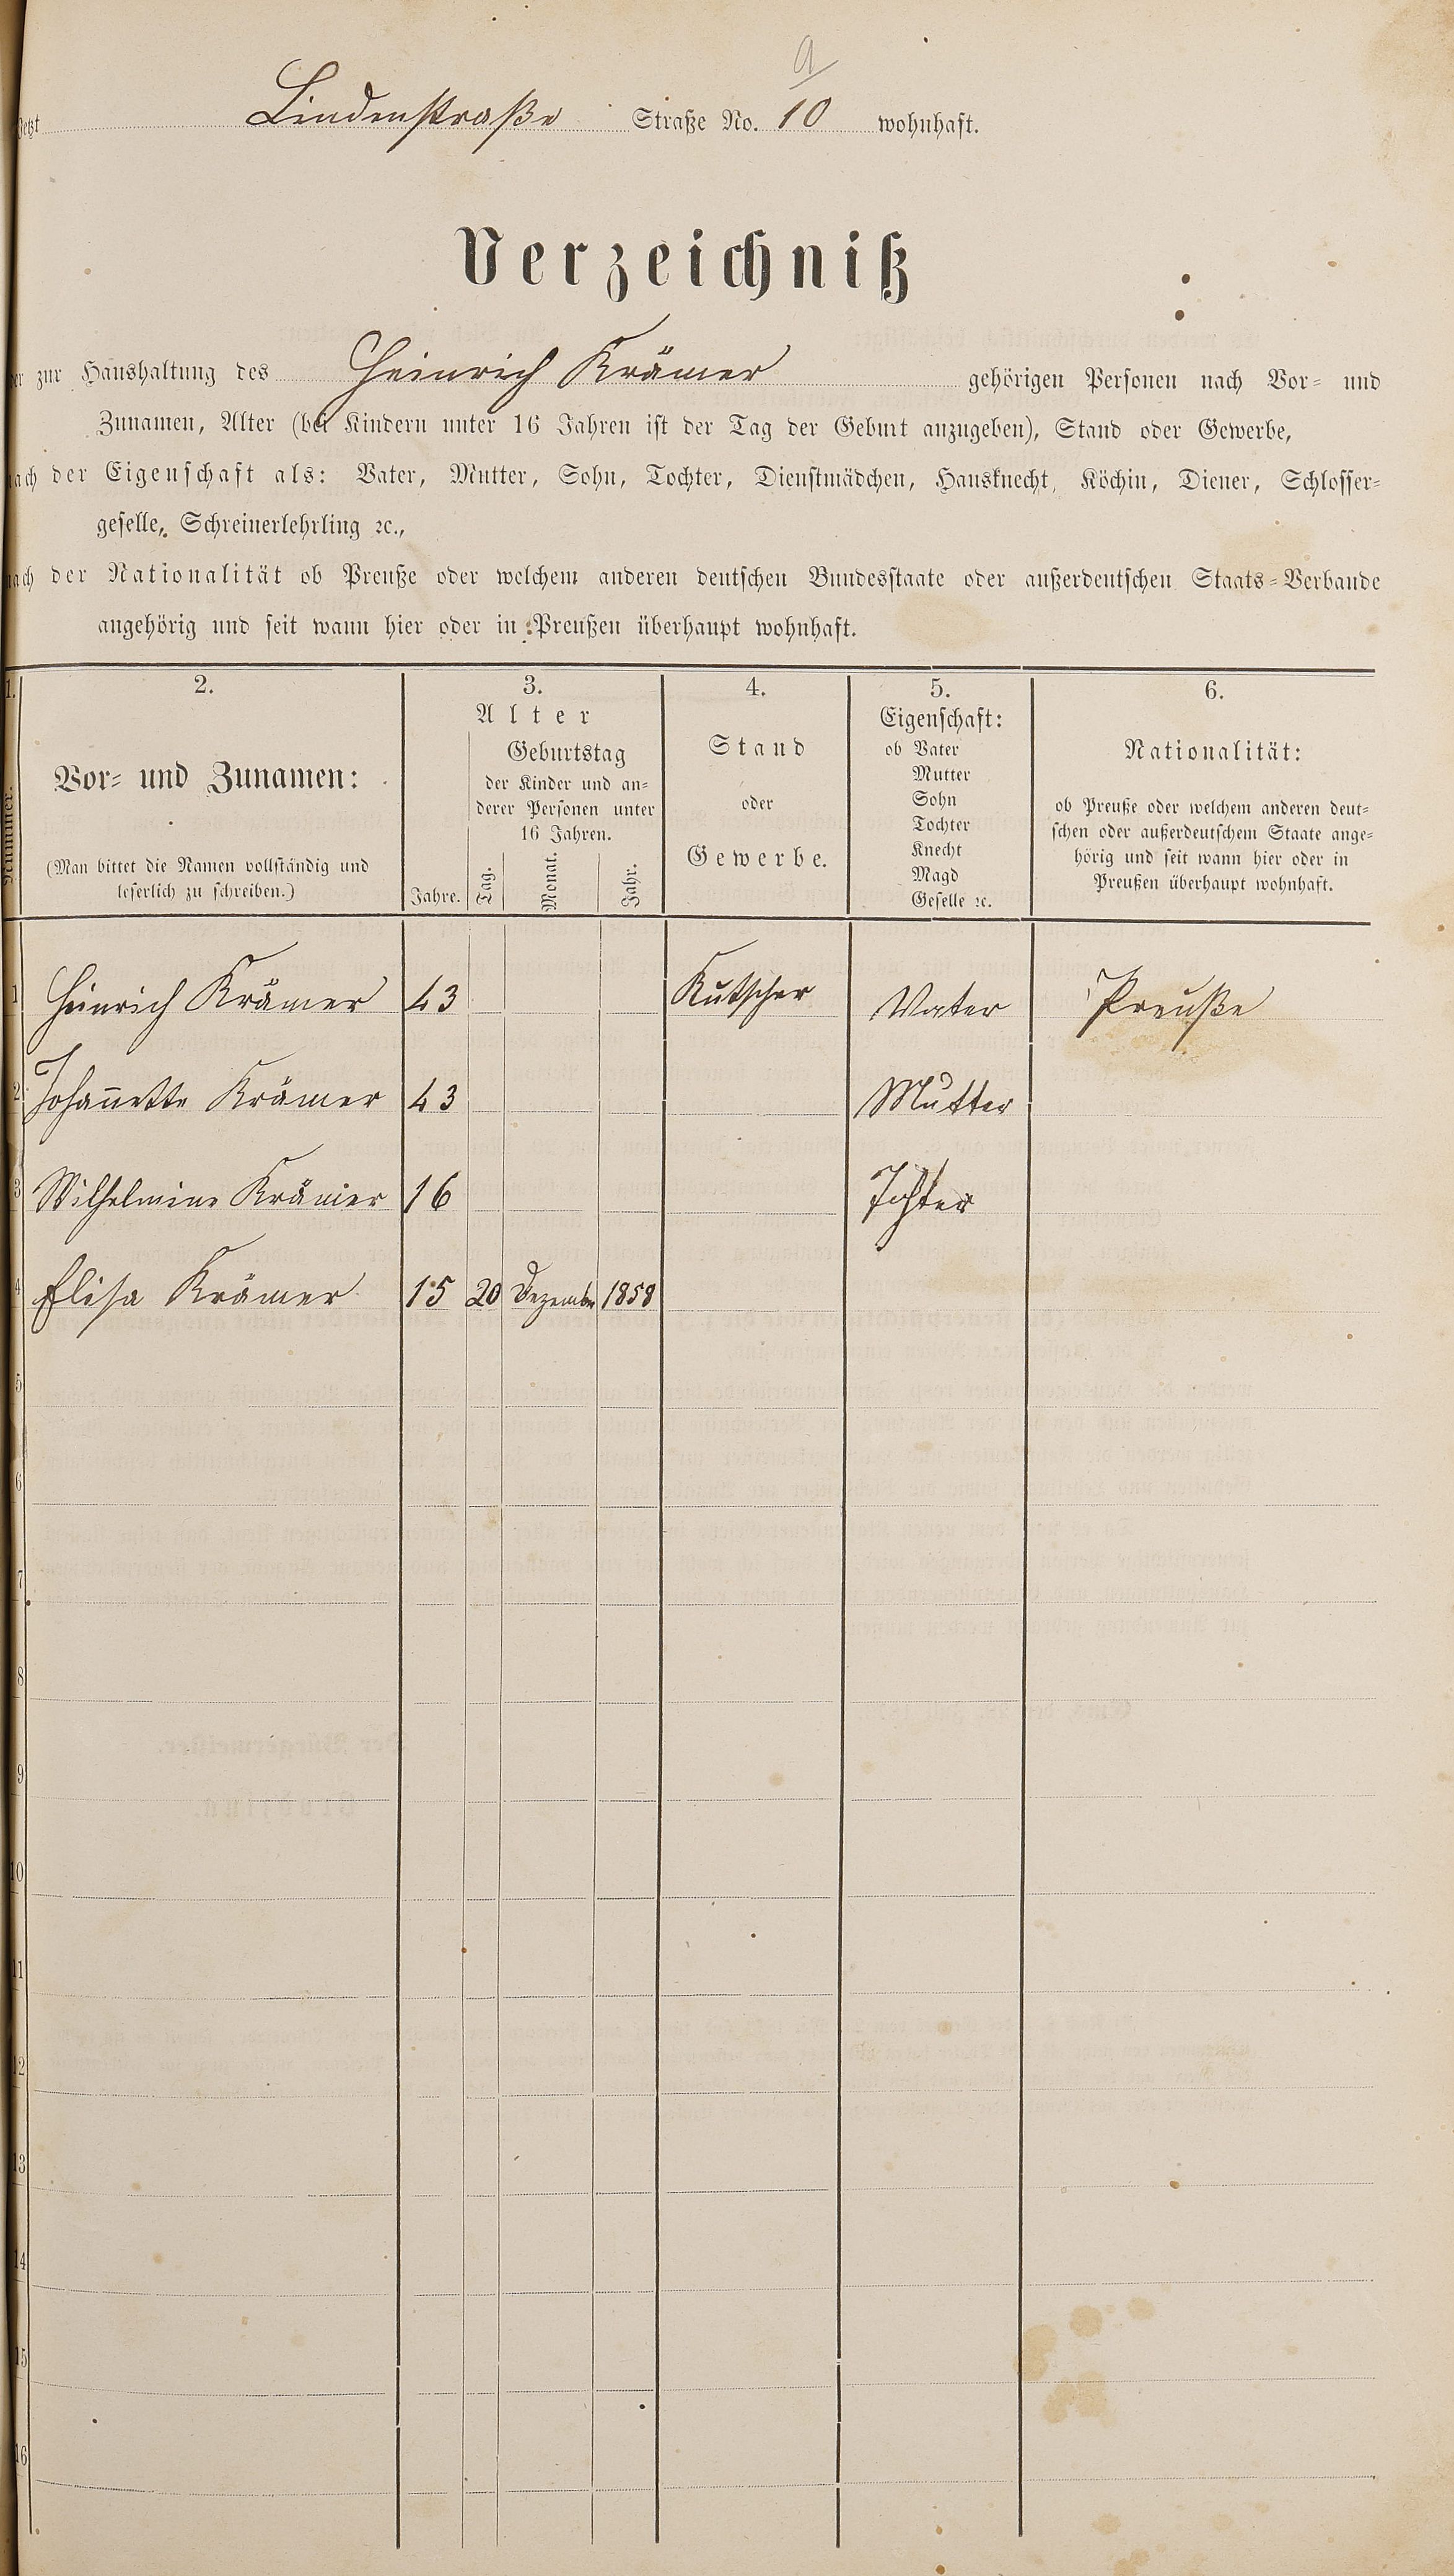 a
jetzt Lindenstraße Straße No. 10 wohnhaft.
Verzeichniß
der zur Haushaltung des Heinrich Krämer gehörigen Personen nach Vor- und
Zunamen, Alter (bei Kindern unter 16 Jahren ist der Tag der Geburt anzugeben), Stand oder Gewerbe,
nach der Eigenschaft als: Vater, Mutter, Sohn, Tochter, Dienstmädchen, Hausknecht, Köchin, Diener, Schlosser-
geselle, Schreinerlehrling ꝛc.,
nach der Nationalität ob Preuße oder welchem anderen deutschen Bundesstaate oder außerdeutschen Staats-Verbande
angehörig und seit wann hier oder in Preußen überhaupt wohnhaft.
1.
Nummer.
2.
Vor- und Zunamen:
(Man bittet die Namen vollständig und
leserlich zu schreiben.)
3.
Alter
Geburtstag
der Kinder und an-
derer Personen unter
16 Jahren.
Jahre. Tag. Monat. Jahr.
4.
Stand
oder
Gewerbe.
5.
Eigenschaft:
ob Vater
Mutter
Sohn
Tochter
Knecht
Magd
Geselle ꝛc.
6.
Nationalität:
ob Preuße oder welchem anderen deut-
schen oder außerdeutschem Staate ange-
hörig und seit wann hier oder in
Preußen überhaupt wohnhaft.
1 Heinrich Krämer 43 Kutscher Vater Preuße
2 Johannette Krämer 43 Mutter
3 Wilhelmine Krämer 16 Tochter
4 Elisa Krämer 15 20 Dezember 1858
5
6
7
8
9
10
11
12
13
14
15
16